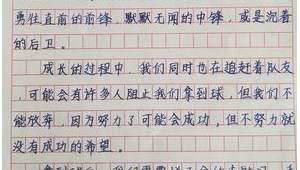 勇往直前的前锋，默默无闻的中锋，或是沉着
的后卫。
成长的过程中，我们同时也在追赶着队友
，可能会有许多人阻止我们拿到球，但我们不
能放弃，因为努力了可能会成功，但不努力就
没有成功的希望。